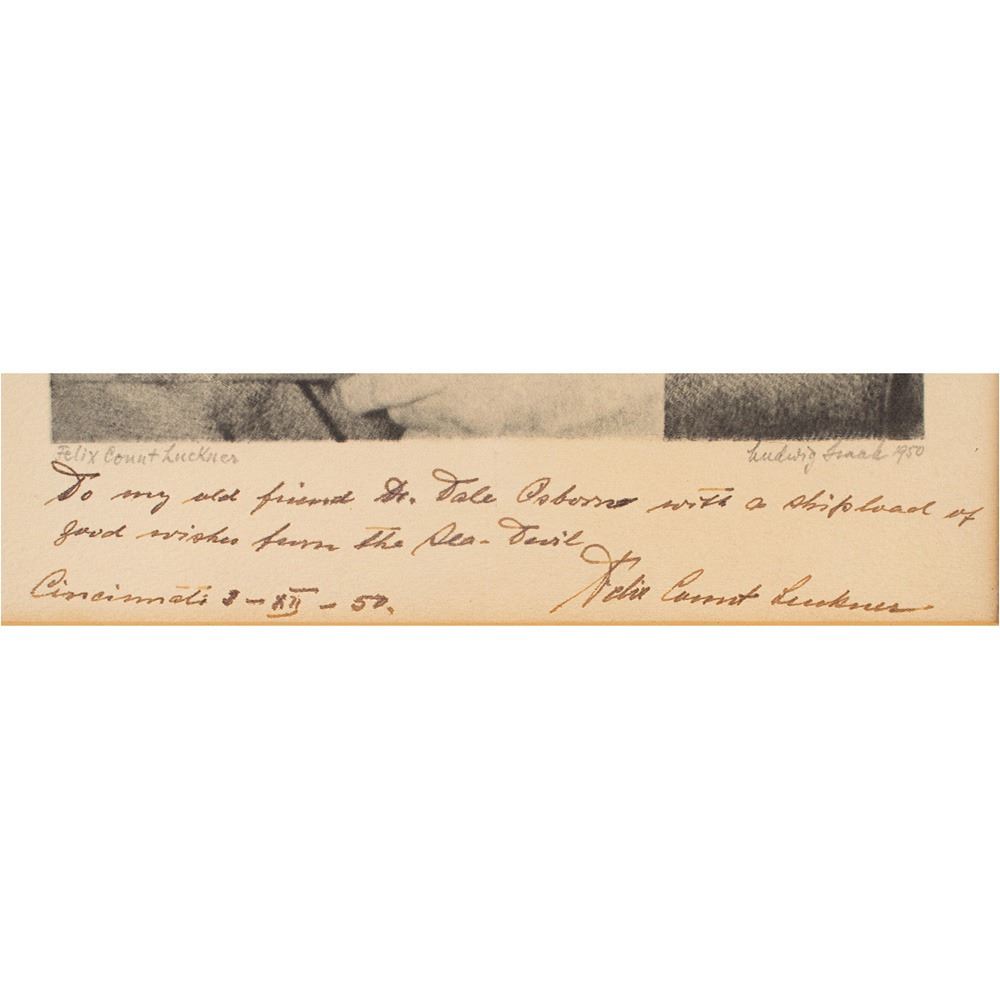 Felix Count Luckner
Ludwig 1950
To my old friend Dr. Dale Osborne with a shipload of
good wishes from the Sea-Devil
Cincinnati 3-XII-50.
Felix Count Luckner